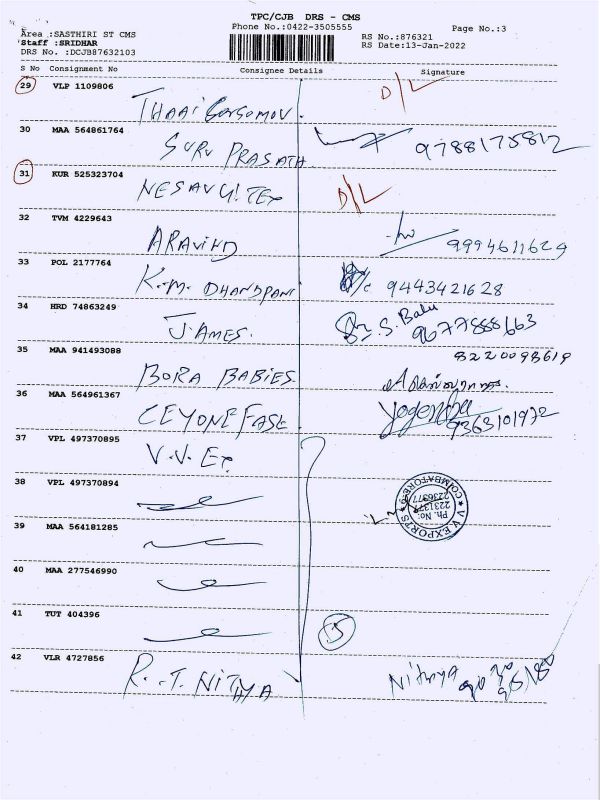 TPC/CJB DRS - CMS
Phone No.:0422-3505555
Page No.:3
Area :SASTHIRI ST CMS
Staff :SRIDHAR
DRS No. :DCJB87632103
RS No.:876321
RS Date:13-Jan-2022
S No Consignment No Consignee Details Signature
29 VLP 1109806 D/L
THAAI
30 MAA 564861764
GURU PRASATH 9788175812
31 KUR 525323704 D/L
NESAVU! TEX
32 TVM 4229643
ARAVIND 9994611629
33 POL 2177764
K.M. DHANDPANI 9443421628
34 HRD 74863249
JAMES. S. Balu 9677888663
35 MAA 941493088 8220098619
BORA BABIES
36 MAA 564961367
CEYONE FASE Yogendra 9363101972
37 VPL 497370895
V.V. Ex.
38 VPL 497370894
V V EXPORTS ★ COIMBATORE-9 ★
Ph. No:
2231377
2236377
39 MAA 564181285
40 MAA 277546990
41 TUT 404396 5
42 VLR 4727856
R.T. NITHYA Nithya